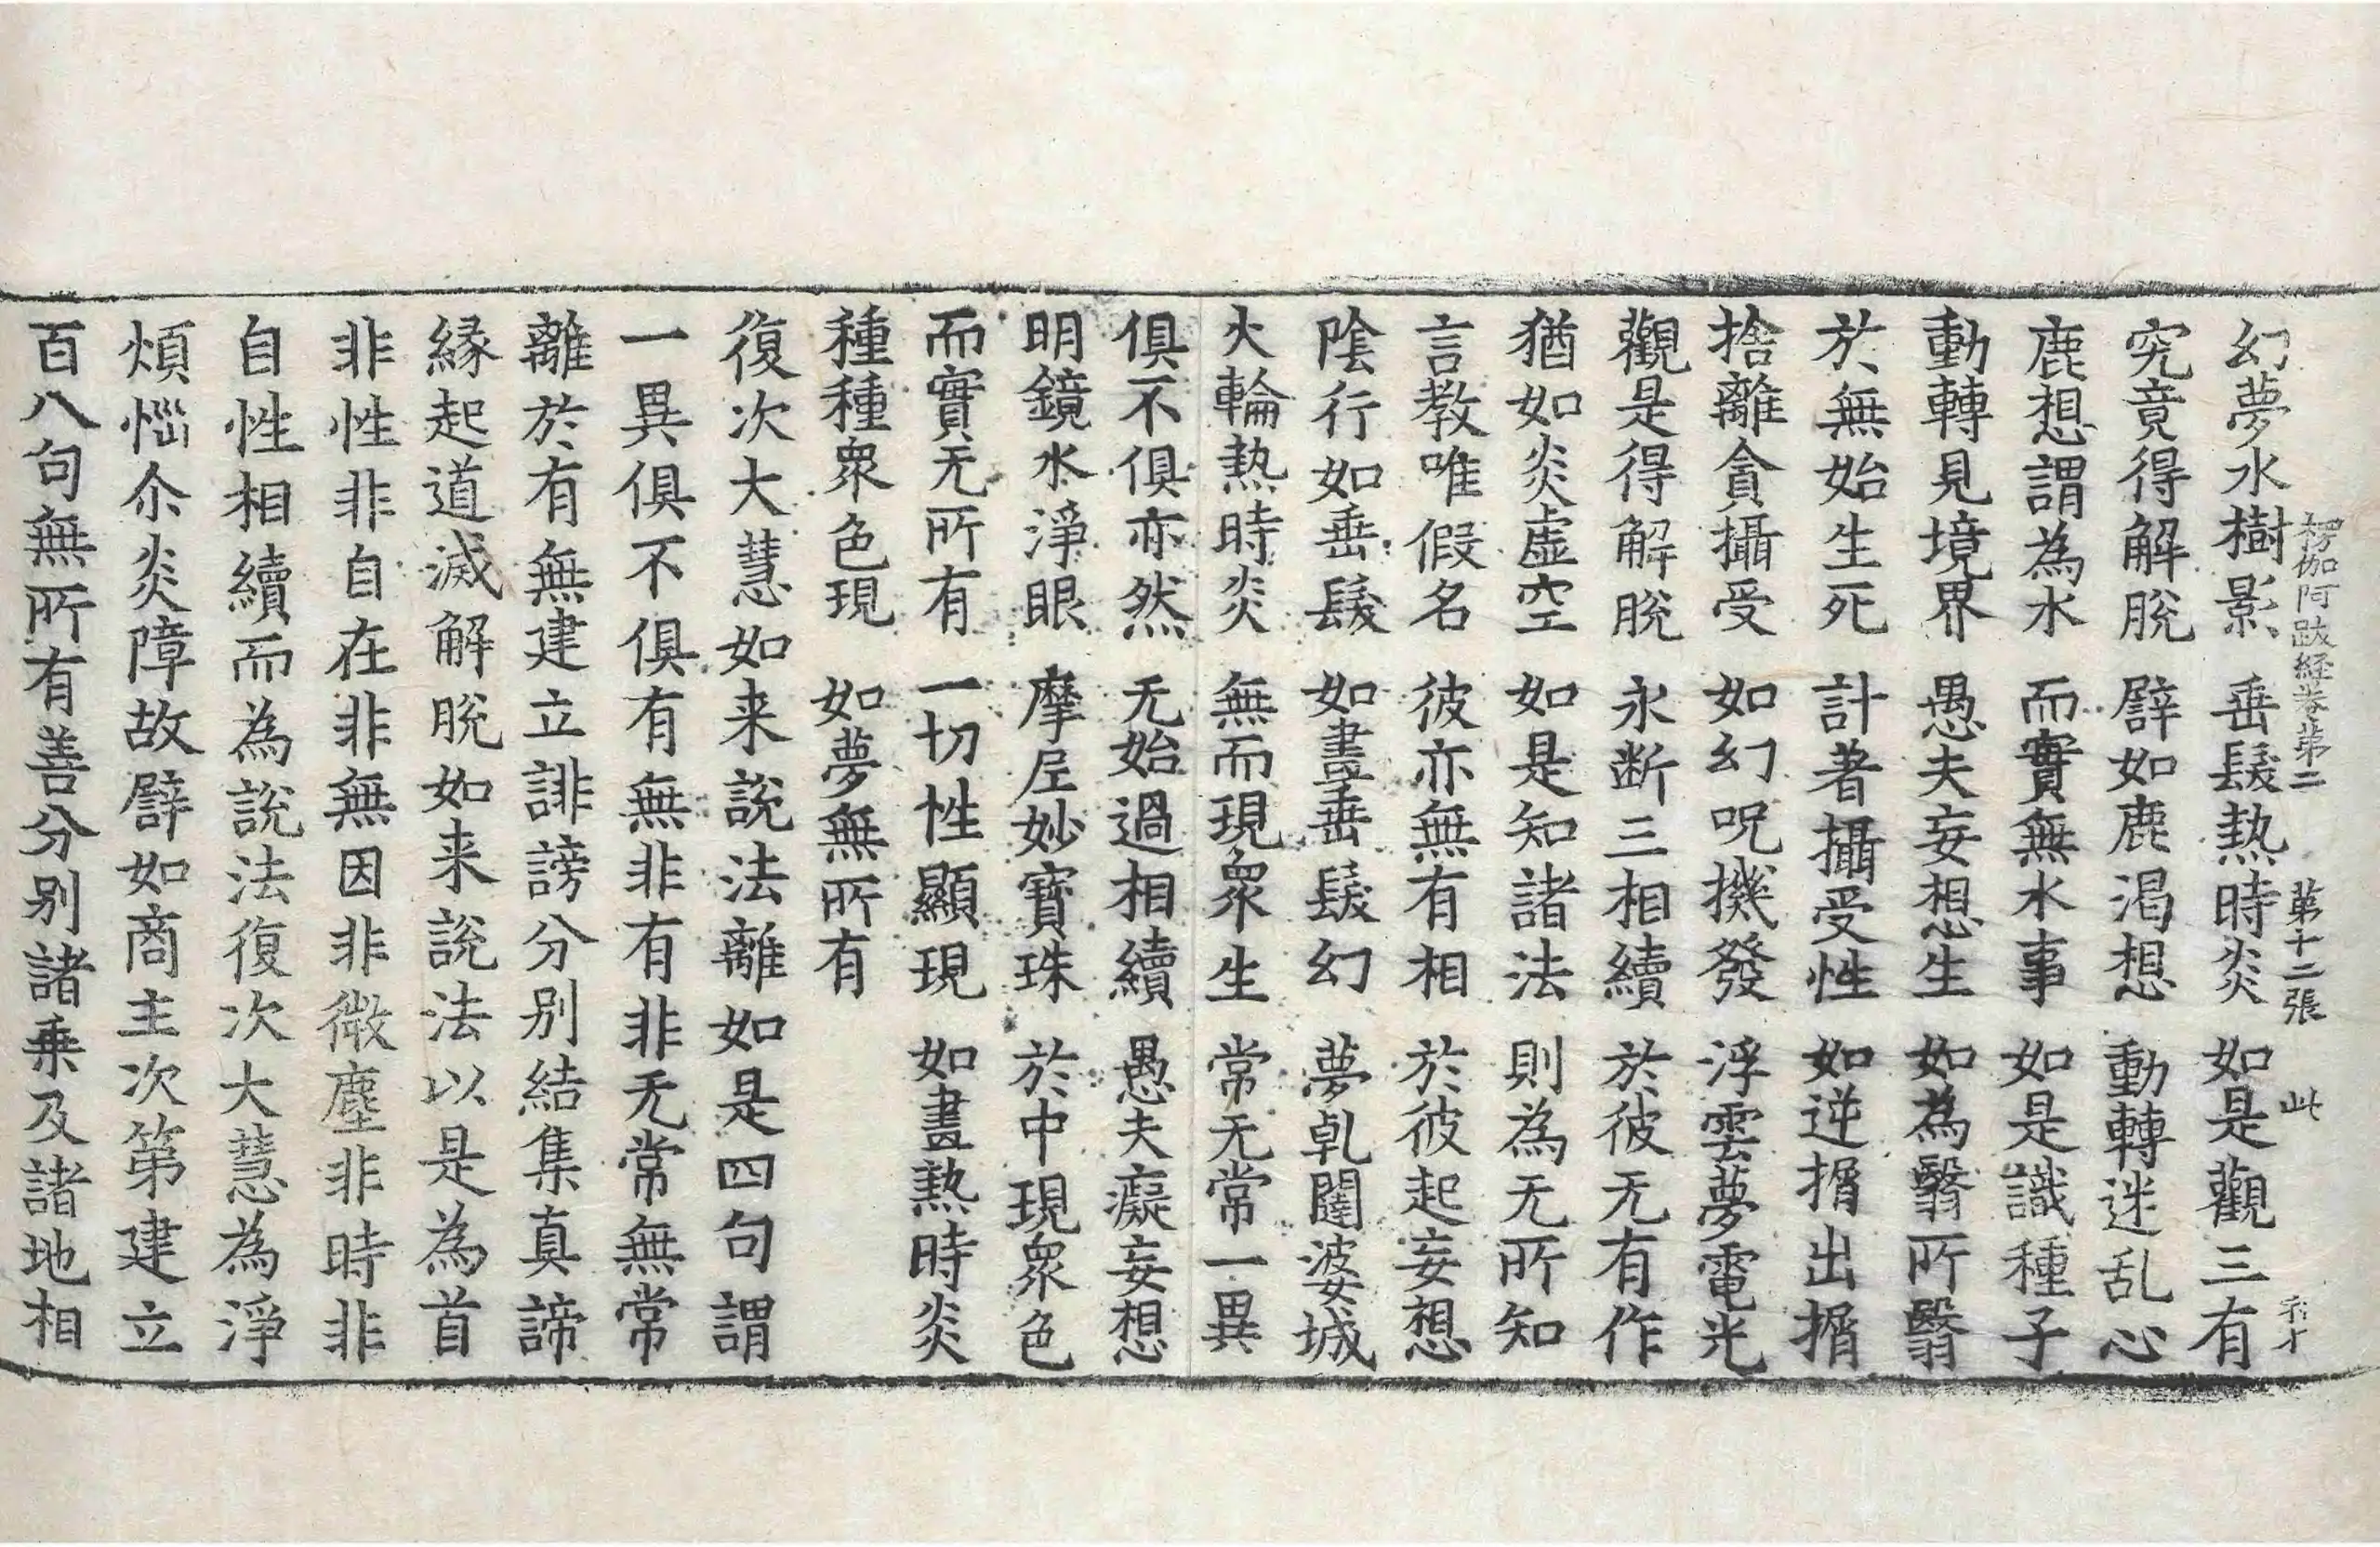 幻夢水樹影 垂髮熱時炎 如是觀三有
楞伽阿跋経巻第二 第十二張 此
究竟得解脫 譬如鹿渴想 動轉迷乱心
鹿想謂為水 而實無水事 如是識種子
動轉見境界 愚夫妄想生 如為翳所翳
於無始生死 計著攝受性 如逆揟出揟
捨離貪攝受 如幻呪機發 浮雲夢電光
觀是得解脫 永断三相續 於彼无有作
猶如炎虛空 如是知諸法 則為无所知
言教唯假名 彼亦無有相 於彼起妄想
陰行如垂髮 如畫垂髮幻 夢乹闥婆城
火輪熱時炎 無而現衆生 常无常一異
俱不俱亦然 无始過相續 愚夫癡妄想
明鏡水淨眼 摩尼妙寶珠 於中現衆色
而實无所有 一切性顯現 如畫熱時炎
種種衆色現 如夢無所有
復次大慧如来說法離如是四句謂
一異俱不俱有無非有非无常無常
離於有無建立誹謗分别結集真諦
緣起道滅解脫如来說法以是為首
非性非自在非無因非微塵非時非
自性相續而為說法復次大慧為淨
煩惱尒炎障故譬如商主次第建立
百八句無所有善分别諸乗及諸地相